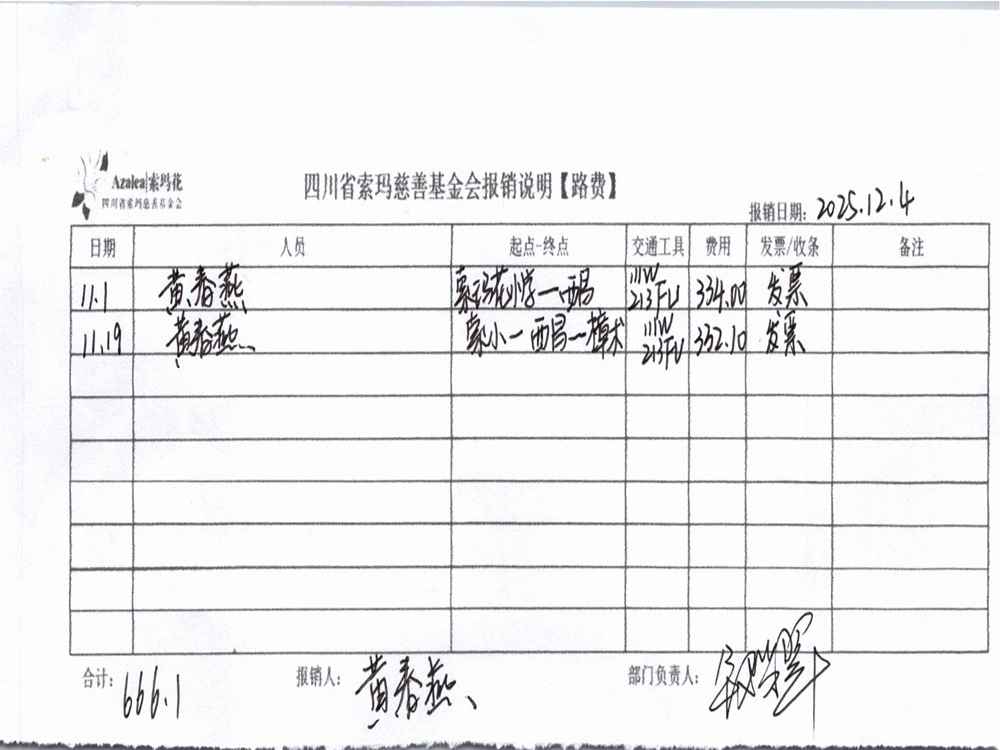 Azalea|索玛花
四川省索玛慈善基金会
四川省索玛慈善基金会报销说明【路费】
报销日期: 2025.12.4
日期 人员 起点-终点 交通工具 费用 发票/收条 备注
11.1 黄春燕 索玛花小学—西昌 川W 213FU 334.00 发票
11.19 黄春燕 索小—西昌—樟木 川W 213FU 332.10 发票
合计: 666.1 报销人: 黄春燕 部门负责人: